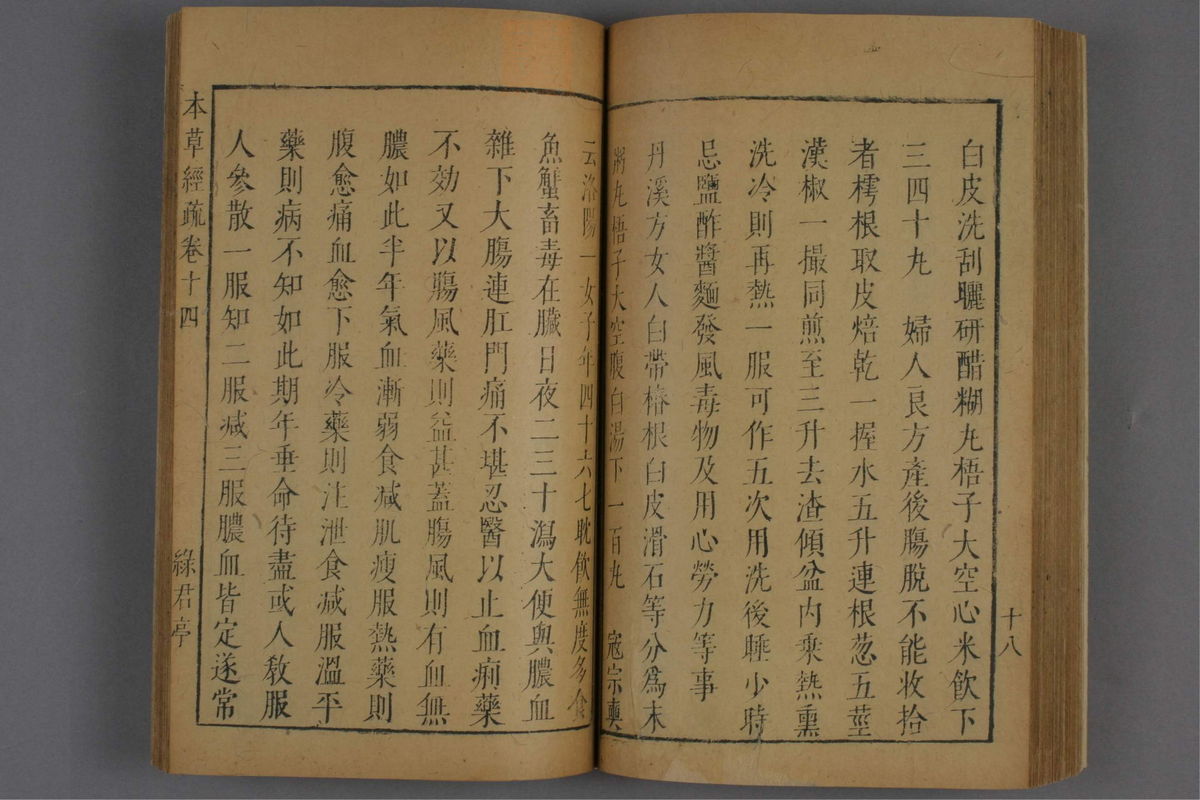 白皮洗刮曬研醋糊丸梧子大空心米飲下
三四十丸　婦人良方產後腸脫不能收拾
者樗根取皮焙乾一握水五升連根葱五莖
漢椒一撮同煎至三升去渣傾盆內乗熱熏
洗冷則再熱一服可作五次用洗後睡少時
忌鹽酢醬麵發風毒物及用心勞力等事
丹溪方女人白帶椿根白皮滑石等分爲末
粥丸梧子大空腹白湯下一百丸　寇宗奭
十八
云洛陽一女子年四十六七耽飲無度多食
魚蟹畜毒在臟日夜二三十瀉大便與膿血
雜下大腸連肛門痛不堪忍醫以止血痢藥
不効又以腸風藥則益甚蓋腸風則有血無
膿如此半年氣血漸弱食减肌瘦服熱藥則
腹愈痛血愈下服冷藥則注泄食减服溫平
藥則病不知如此期年垂命待盡或人教服
人參散一服知二服减三服膿血皆定遂常
本草經疏卷十四
綠君亭